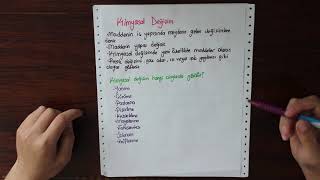 Kimyasal Değişim
-Maddenin iç yapısında meydana gelen değişimlere denir.
-Maddenin yapısı değişir.
-Kimyasal değişimde yeni özellikte maddeler oluşur.
-Renk değişimi, gaz çıkışı, ısı veya ışık
Kimyasal değişim hangi olaylarda görülür?
-Yanma
-Çürüme
-Paslanma
-Pişirilme
-Mayalanma
-Fotosentez
-Solunum